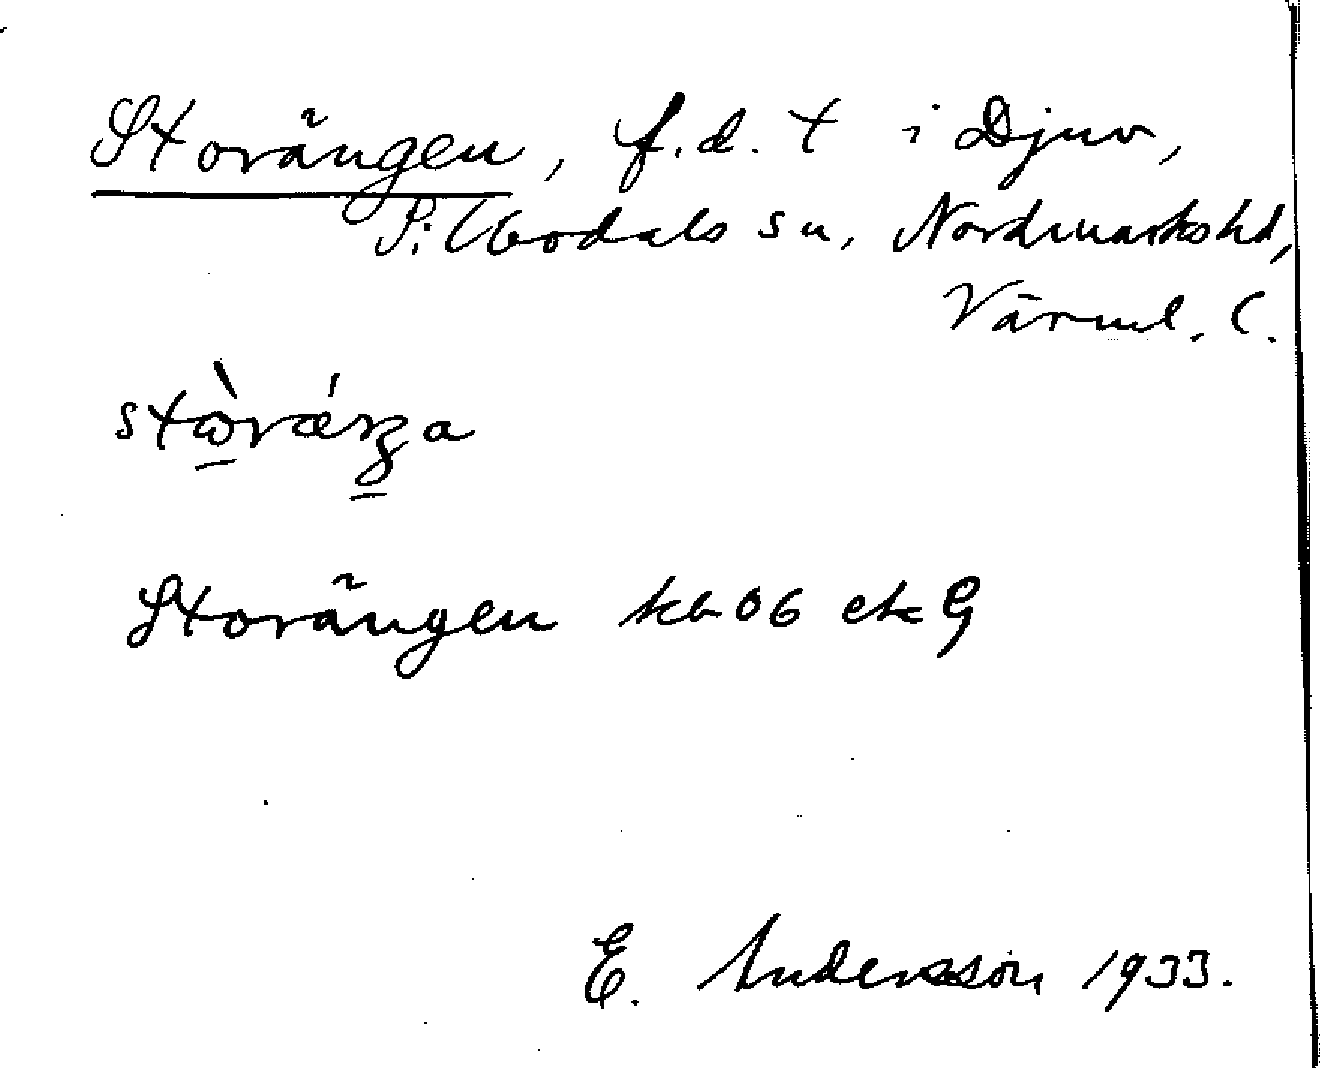 Storängen, f.d. t i Djuv,
Silbodals sn, Nordmarkshd,
Värml. l.
Storängen kb 06 ek G
E. Andersson 1933.